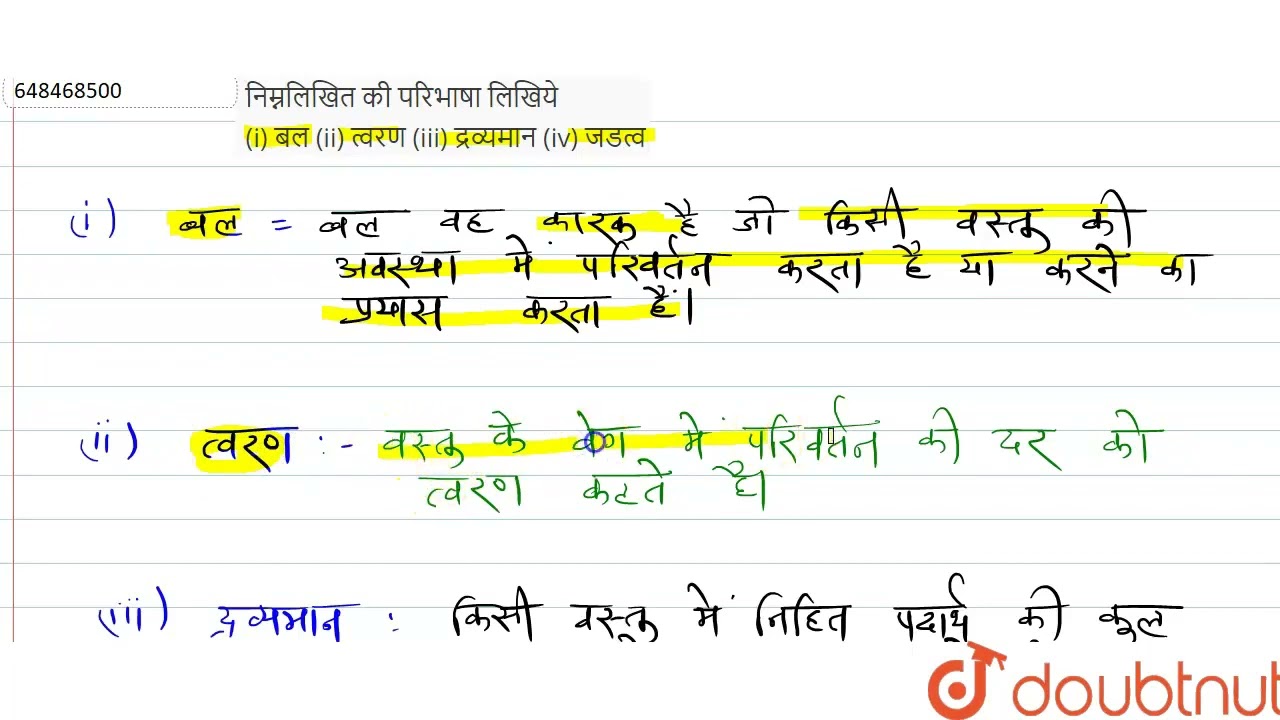 648468500
निम्नलिखित की परिभाषा लिखिये
(i) बल (ii) त्वरण (iii) द्रव्यमान (iv) जडत्व
(i) बल = बल वह कारक है जो किसी वस्तु की
अवस्था में परिवर्तन करता है या करने का
प्रयास करता है।
(ii) त्वरण :- वस्तु के वेग में परिवर्तन की दर को
त्वरण कहते है।
(iii) द्रव्यमान : किसी वस्तु में निहित पदार्थ की कुल
doubtnut